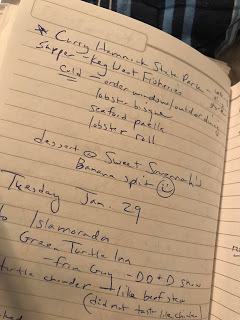 * Curry Hammock State Park -
supper - Key West Fisheries
Cold - order window/outdoor dining
lobster bisque
seafood paella
lobster roll
dessert @ Sweet Savannah's
Banana split ☺
Tuesday Jan. 29
to Islamorada
Green Turtle Inn
from Guy - DD+D show
turtle chowder - like beef stew
(did not taste like chicken)